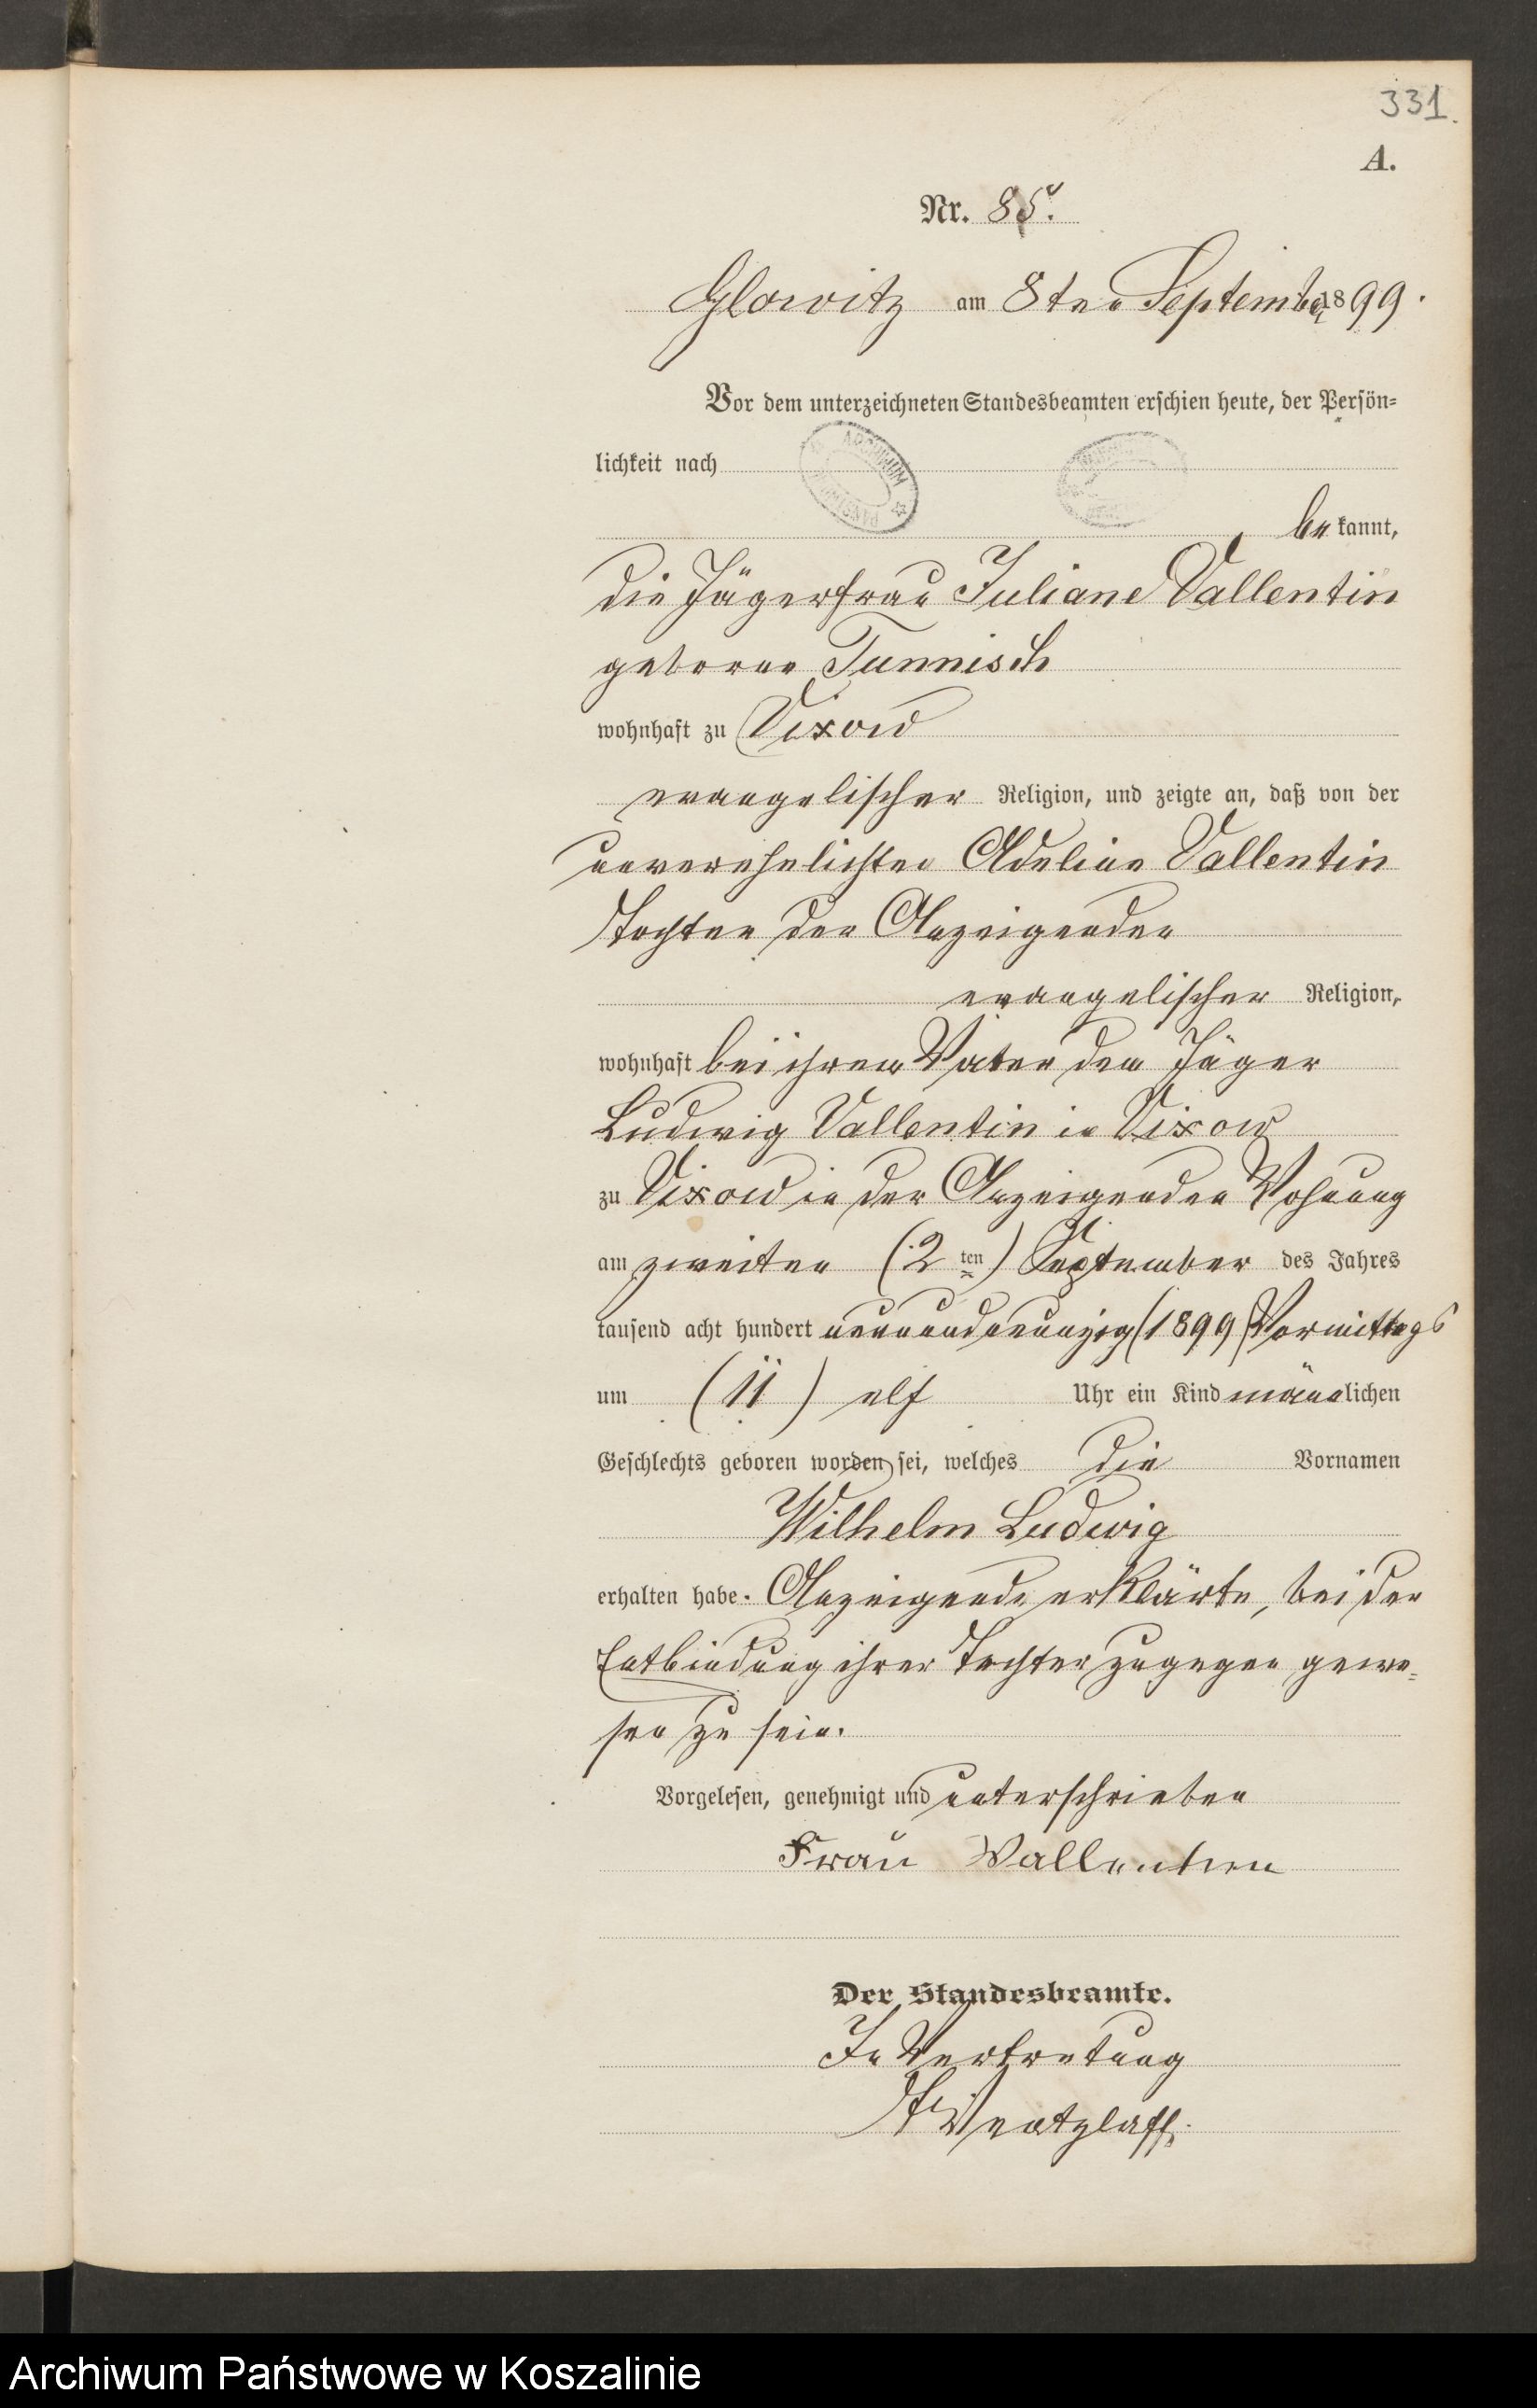 331.
A.
Nr. 85.
Glowitz am 8ten September 1899.
Vor dem unterzeichneten Standesbeamten erschien heute, der Persön-
lichkeit nach
ARCHIWUM
bekannt,
die Jägerfrau Juliane Vallentin
geborne Tunnisch
wohnhaft zu Vixow
evangelischer Religion, und zeigte an, daß von der
unverehelichten Adeline Vallentin
Tochter der Anzeigenden
evangelischer Religion,
wohnhaft bei ihrem Vater dem Jäger
Ludwig Vallentin in Vixow
zu Vixow in der Anzeigenden Wohnung
am zweiten (2ten) September des Jahres
tausend acht hundert neunundneunzig (1899) Vormittags
um (11) elf Uhr ein Kind männlichen
Geschlechts geboren worden sei, welches die Vornamen
Wilhelm Ludwig
erhalten habe. Anzeigende erklärte, bei der
Entbindung ihrer Tochter zugegen gewe-
sen zu sein.
Vorgelesen, genehmigt und unterschrieben
Frau Vallentien
Der Standesbeamte.
In Vertretung
Wentzlaff.
Archiwum Państwowe w Koszalinie